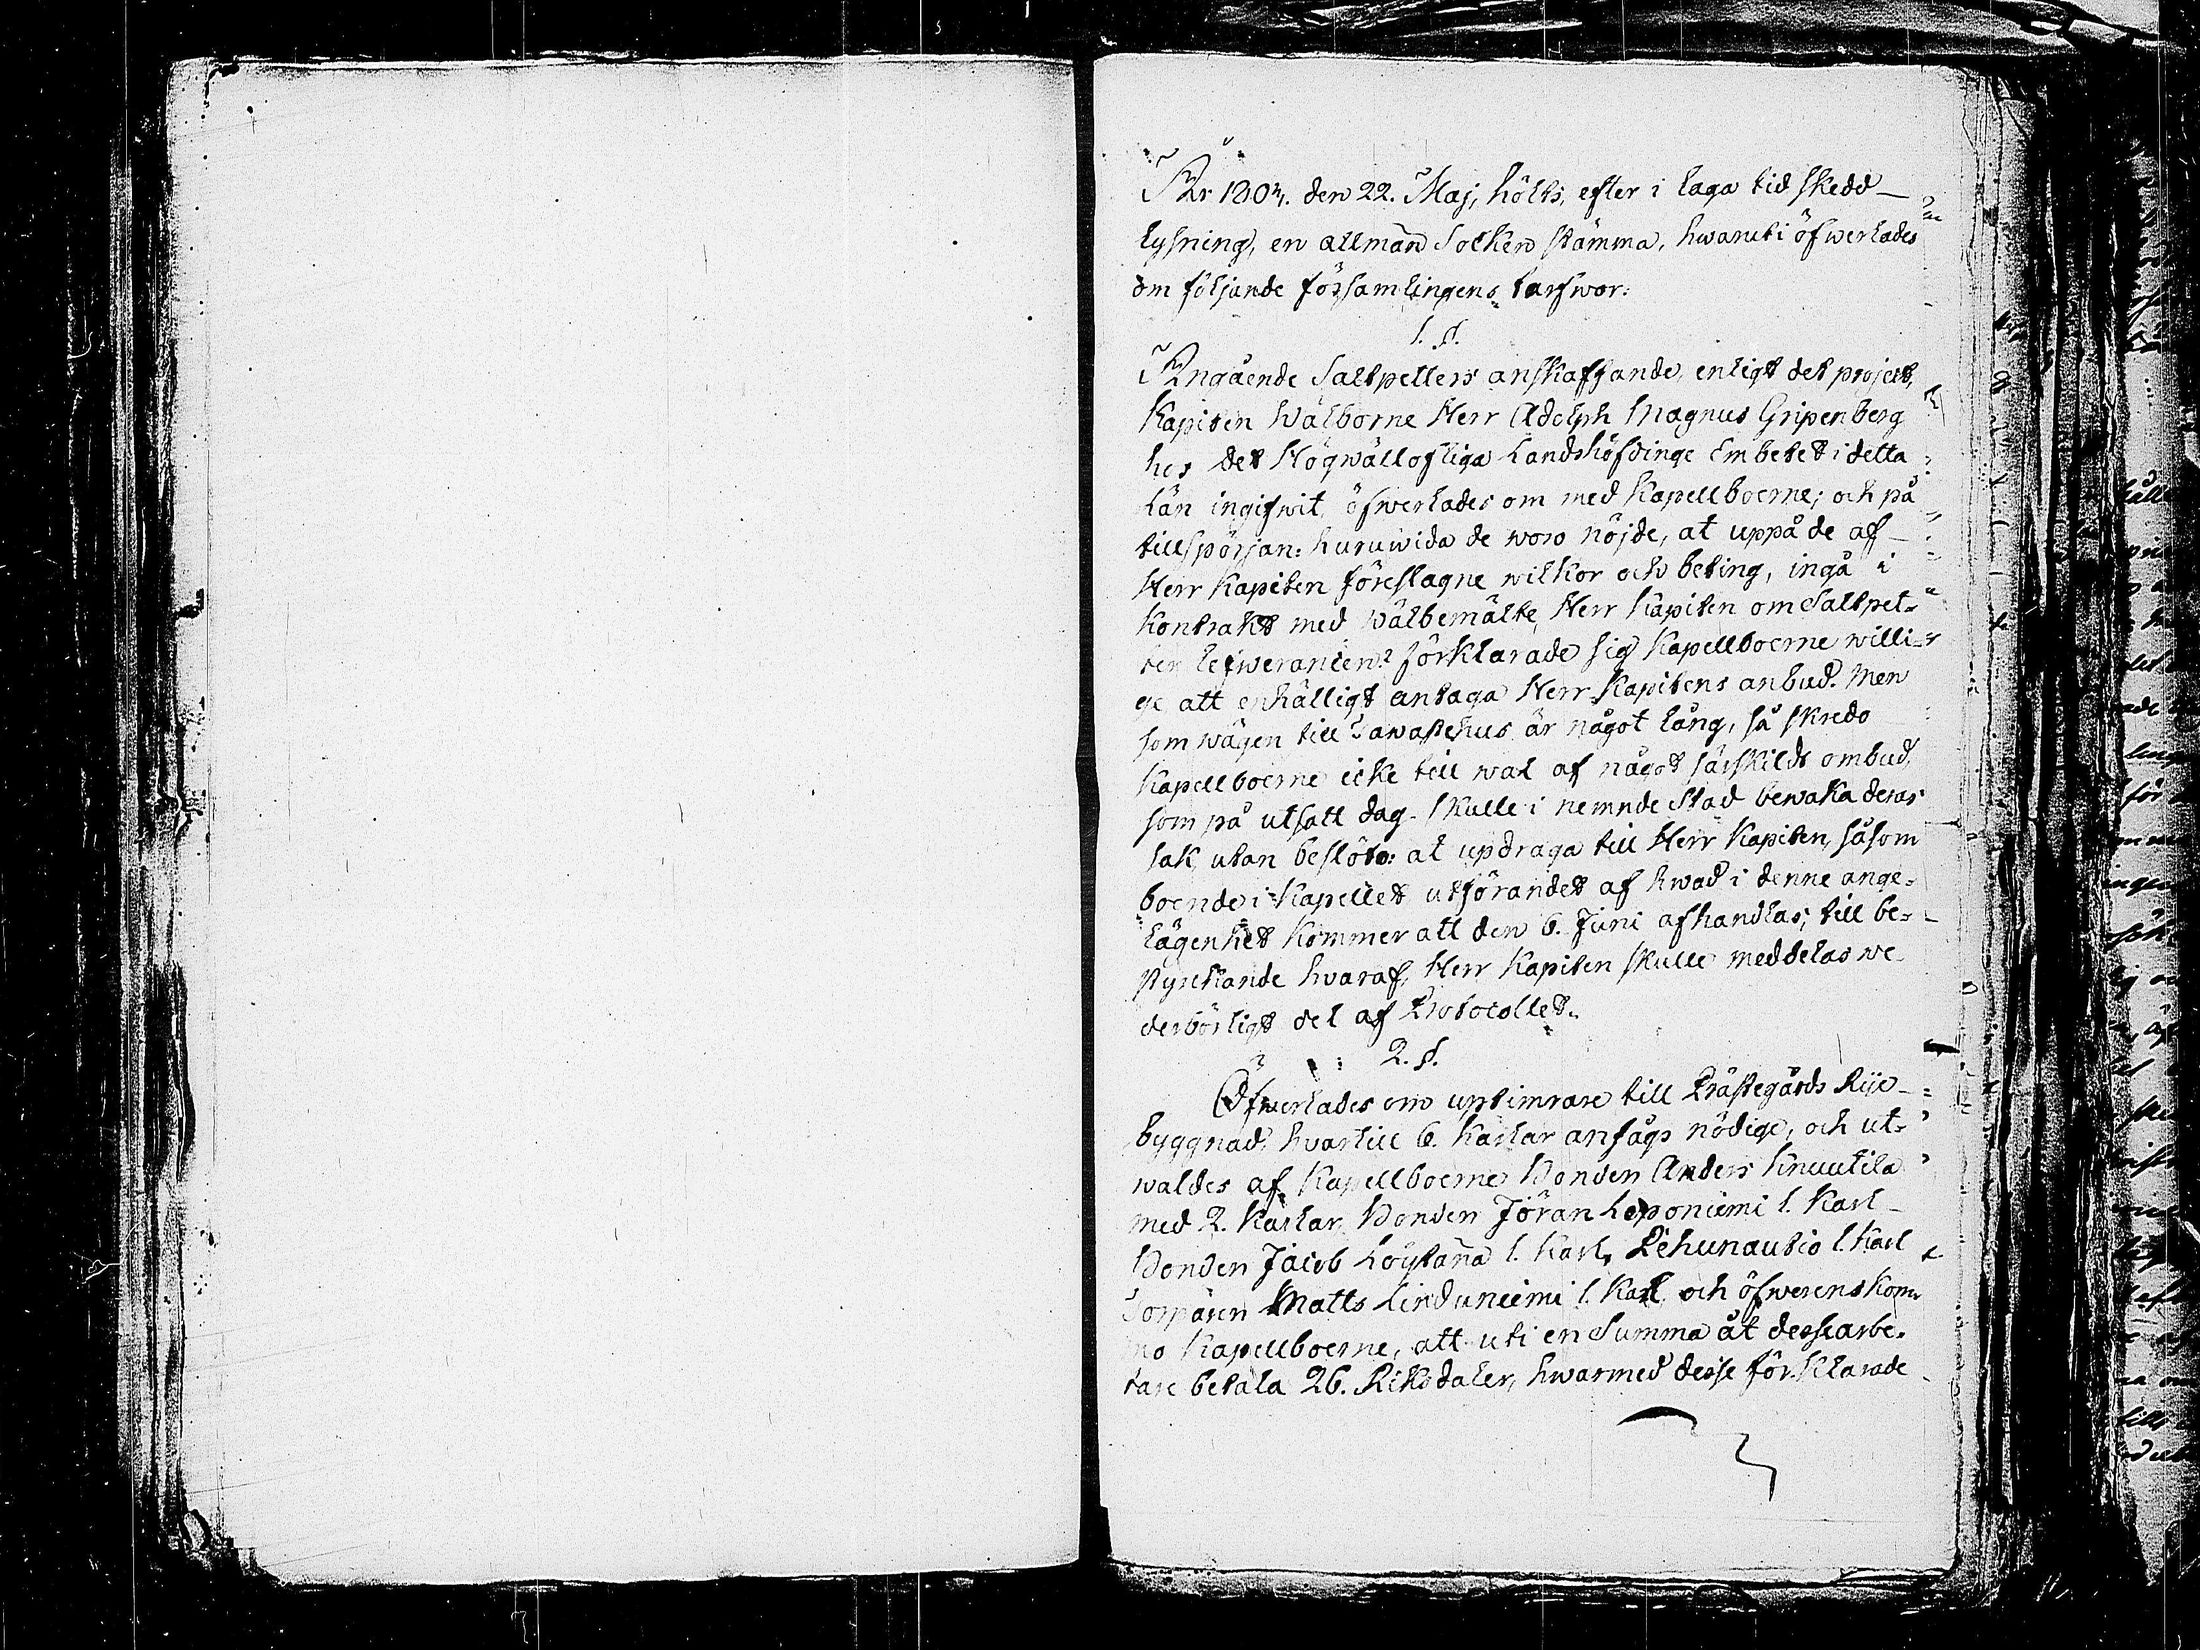 År 1803. den 22. Maj, hölts, efter i laga tid skedd
lysning, en allmän Socken stämma, hwaruti öfwerlades
om följande församlingens tarfwor:
1. §.
Angående Saltpetters anskaffande, enligt det project,
Kapiten Wälborne Herr Adolph Magnus Gripenberg
hos det Högwällofliga Landshöfdinge Embetet i detta
Län ingifwit, öfwerlades om med Kapellboerne; och på
tillspörjan: huruwida de woro nöjde, at uppå de af
Herr Kapiten föreslagne wilkor och beting, ingå i
Kontrakt med Wälbemälte Herr Kapiten om Saltpet-
ter lefweranien? förklarade sig Kapellboerne willi-
ge att enhälligt antaga Herr Kapitens anbud. Men
som wägen till Tawastehus är något lång, så skredo
Kapellboerne icke till wal af något särskildt ombud,
som på utsatt dag skulle i nemnde Stad bewaka deras
sak, utan beslöto: at updraga till Herr Kapiten, såsom
boende i Kapellet utförandet af hwad i denne ange-
lägenhet kommer att den 6. Juni afhandlas; till be-
styrkande hvaraf, Herr Kapiten skulle meddelas we-
derbörligt del af Protocollet.
2. §.
Öfwerlades om uptimrare till Prästegårds Rije-
byggnad, hvartill 6. karlar ansågs nödige, och ut-
waldes af Kapellboerne Bonden Anders Knuutila
med 2. karlar Bonden Jöran Leponiemi 1. Karl
Bonden Jacob Löytänä 1. karl, Lehunautio 1. Karl
Torparen Matts Linduniemi 1. Karl och öfwerenskom-
mo Kapellboerne, att uti en Summa åt desse arbe-
tare betala 26. Riksdaler, hwarmed desse förklarade